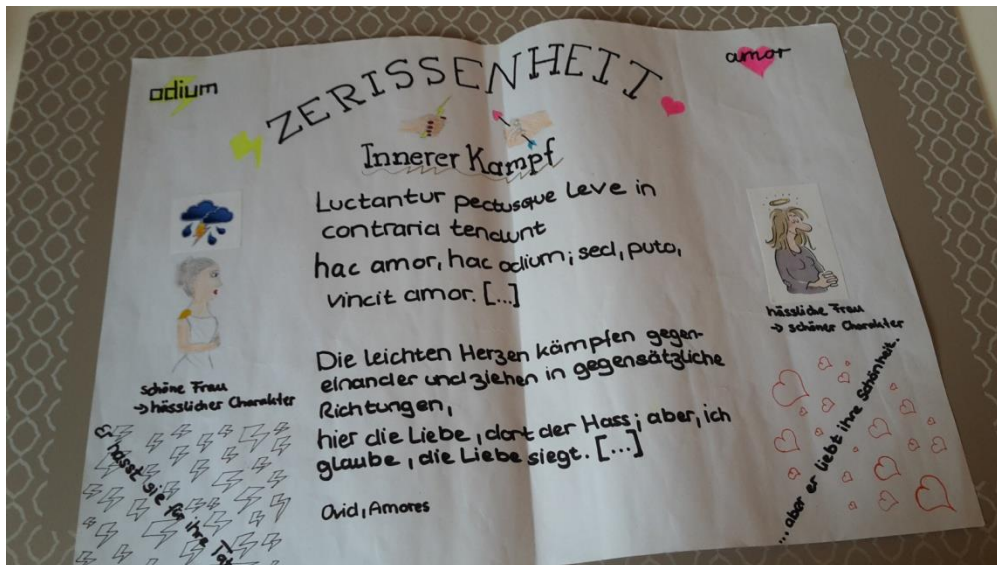 odium
ZERISSENHEIT
amor
Innerer Kampf
Luctantur pectusque leve in
contraria tendunt
hac amor, hac odium; sed, puto,
vincit amor. [...]
Die leichten Herzen kämpfen gegen-
einander und ziehen in gegensätzliche
Richtungen,
hier die Liebe, dort der Hass; aber, ich
glaube, die Liebe siegt. [...]
Ovid, Amores
schöne Frau
→ hässlicher Charakter
Er hasst sie für ihre
hässliche Frau
→ schöner Charakter
...aber er liebt ihre Schönheit.